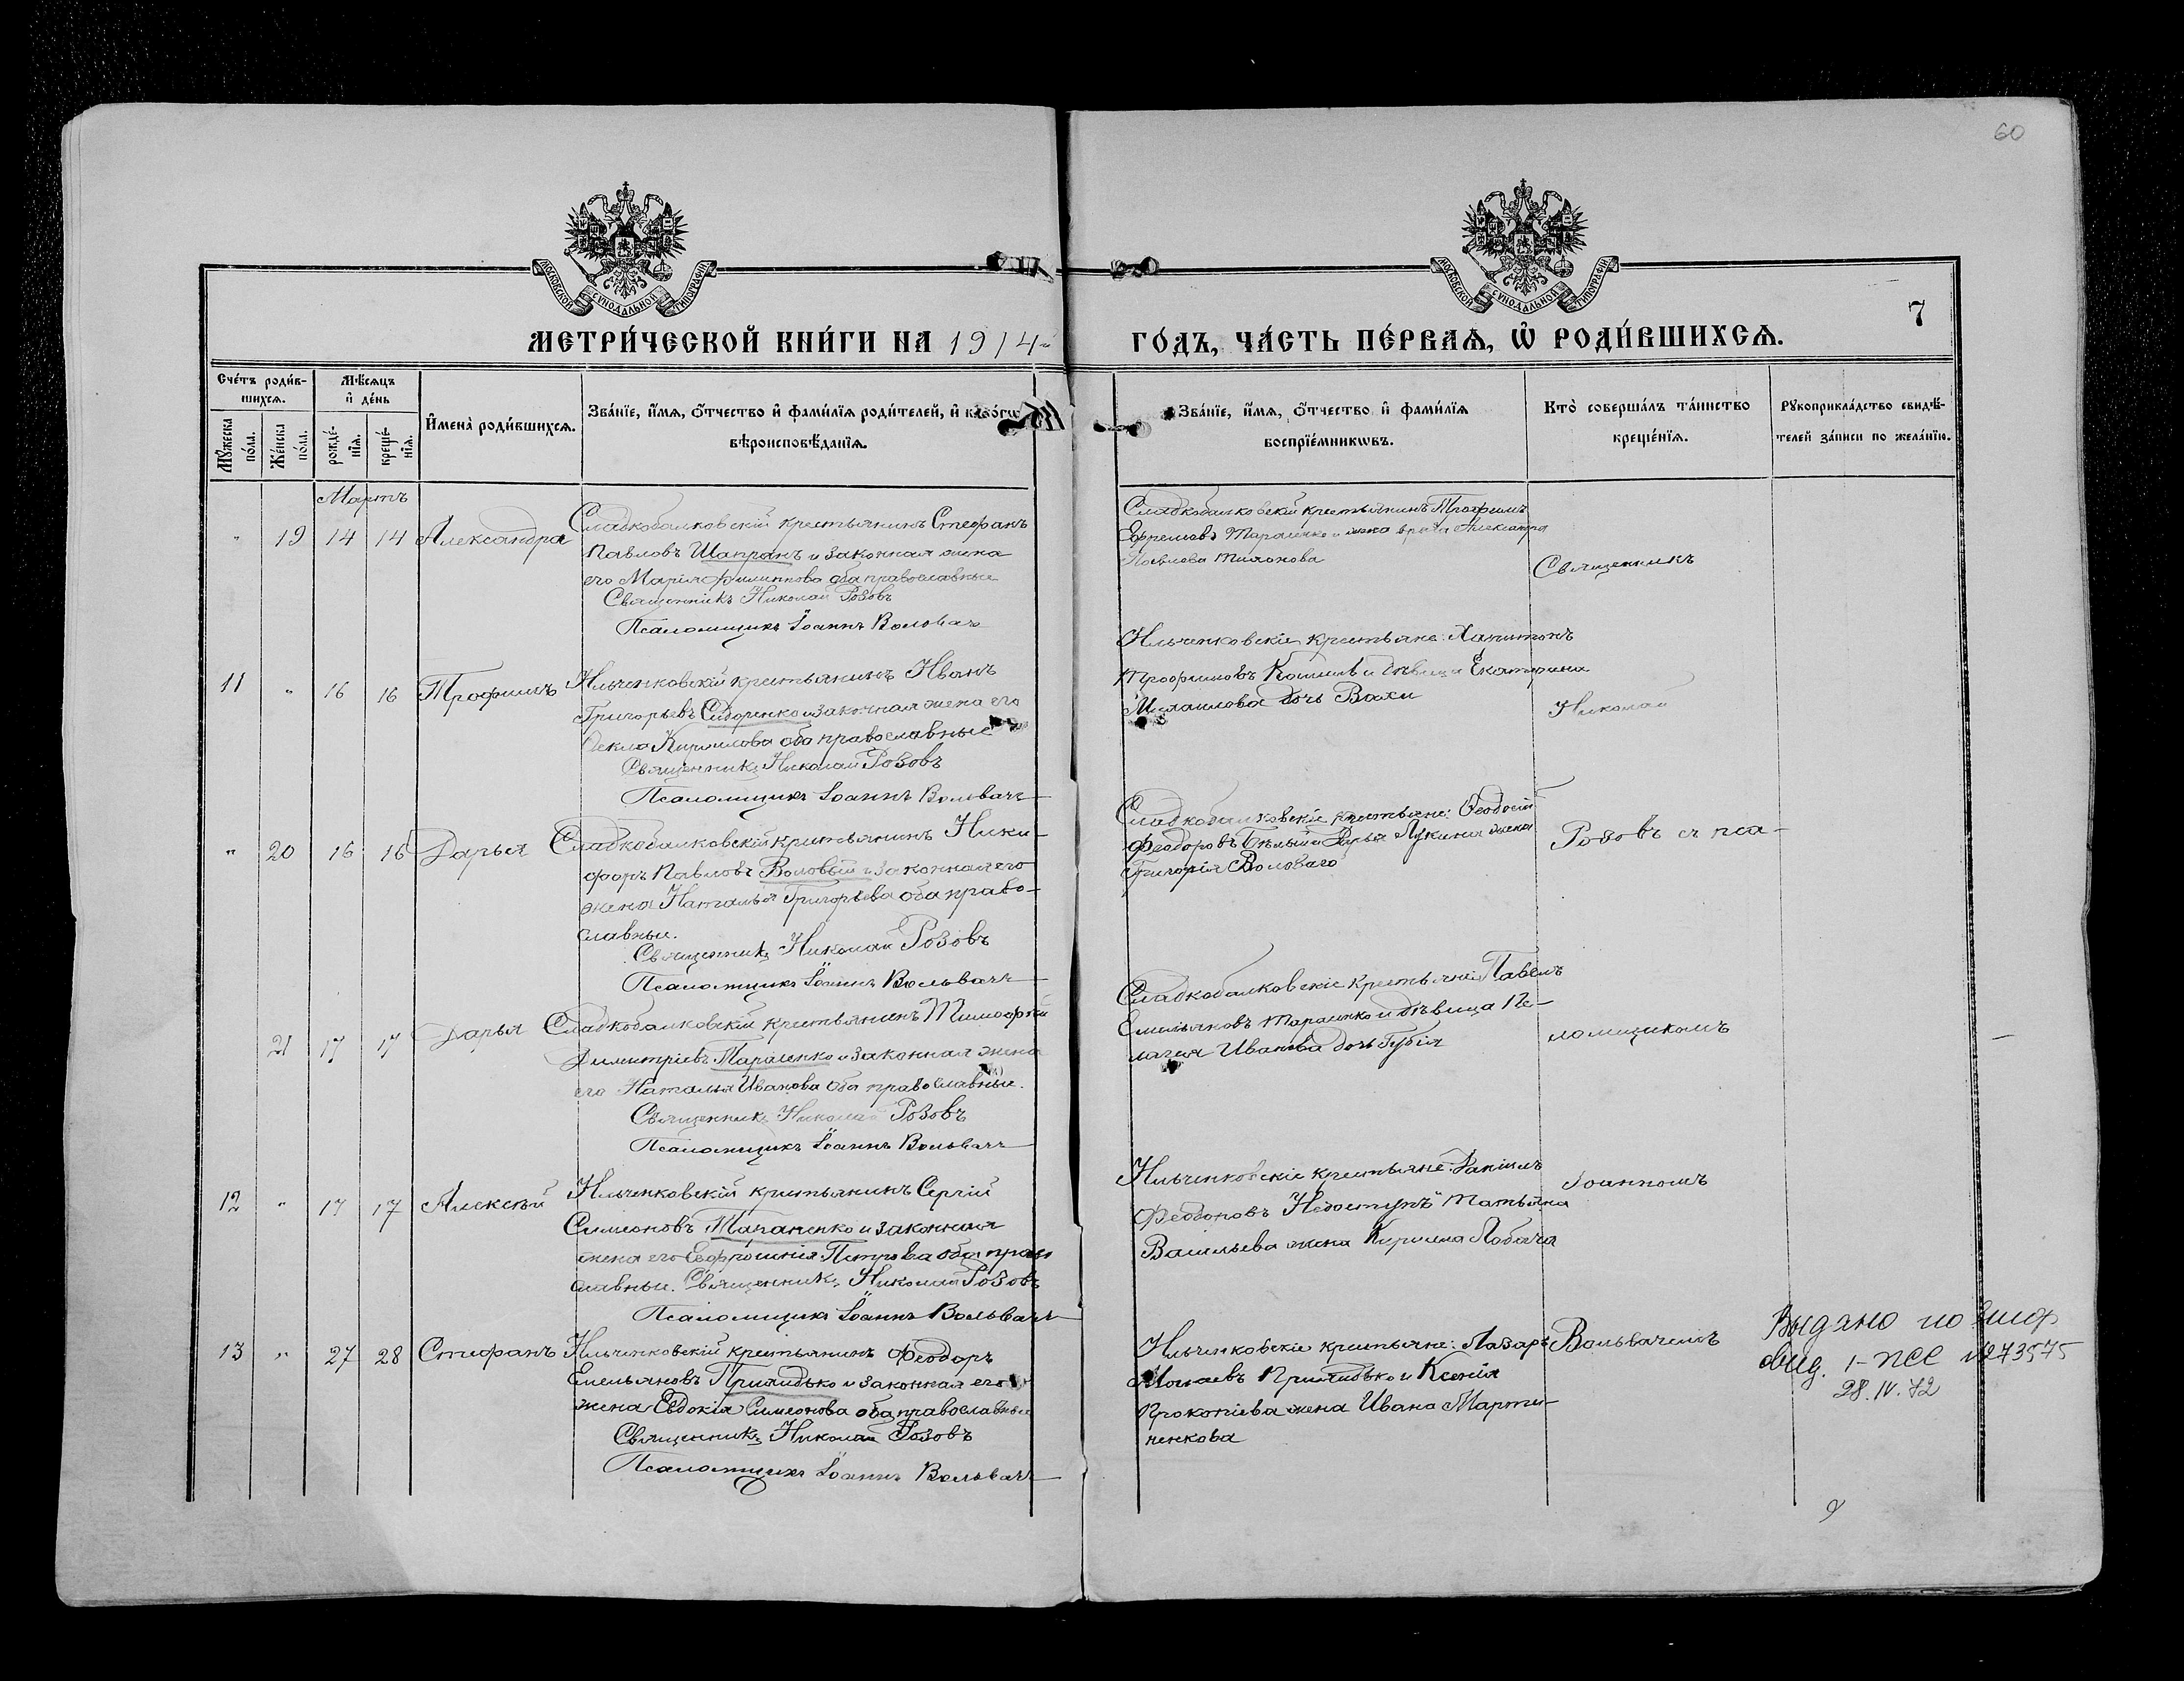 60
МОСКОВСКОЙ СУНОДАЛЬНОЙ ТИПОГРАФІИ
МОСКОВСКОЙ СУНОДАЛЬНОЙ ТИПОГРАФІИ
7
МЕТРИ́ЧЕСКОЙ КНИ́ГИ НА 1914
ГО́ДЪ, ЧА́СТЬ ПЕ́РВАѦ, Ѡ҆ РОДИ́ВШИХСѦ.
Сче́тъ роди́в-
шихсѧ.
Мꙋ́жеска по́ла.
Же́нска по́ла.
Мѣ́сѧцъ
и҆ де́нь
рожде́-
нїѧ.
креще́-
нїѧ.
И҆мена̀ роди́вшихсѧ.
Зва́нїе, и҆́мѧ, ѻ҆́тчество и҆ фами́лїѧ роди́телей, и҆ како́гѡ
вѣроисповѣ́данїѧ.
Зва́нїе, и҆́мѧ, ѻ҆́тчество и҆ фами́лїѧ
воспрїе́мникѡвъ.
Кто̀ соверша́лъ та́инство
креще́нїѧ.
Рꙋкоприкла́дство свидѣ́-
телей за́писи по жела́нїю.
Мартъ
" 19 14 14 Александра
Сладкобалковскій крестьянинъ Стефанъ
Павловъ Шапранъ и законная жена
его Марія Филиппова оба православные
Священникъ Николай Розовъ
Псаломщикъ Іоаннъ Вольвачъ
Сладкобалковскій крестьянинъ Трофимъ
Ефремовъ Тараненко и жена врача Александра
Павлова
Священникъ
11 " 16 16 Трофимъ
Ильченковскій крестьянинъ Иванъ
Григорьевъ Сидоренко и законная жена его
Ѳекла Кириллова оба православные
Священникъ Николай Розовъ
Псаломщикъ Іоаннъ Вольвачъ
Ильченковскіе крестьяне: Харитонъ
Трофимовъ и дѣвица Екатерина
Михаилова дочь
Николай
" 20 16 16 Дарья
Сладкобалковскій крестьянинъ Ники-
форъ Павловъ Воловый и законная его
жена Наталья Григорьева оба право-
славные.
Священникъ Николай Розовъ
Псаломщикъ Іоаннъ Вольвачъ
Сладкобалковскіе крестьяне: Ѳеодосій
Феодоровъ Бѣлый и Дарья Лукина жена
Григорія Волового
Розовъ съ пса-
21 17 17 Дарья
Сладкобалковскій крестьянинъ Тимофей
Димитріевъ Тараненко и законная жена
его Наталья Иванова оба православные.
Священникъ Николай Розовъ
Псаломщикъ Іоаннъ Вольвачъ
Сладкобалковскіе крестьяне Павелъ
Емильяновъ Тараненко и дѣвица Пе-
лагея Иванова дочь Губія
ломщикомъ
12 " 17 17 Алексѣй
Ильченковскій крестьянинъ Сергій
Симеоновъ Тапаненко и законная
жена его Евфросинія Петрова оба право
славные. Священникъ Николай Розовъ
Псаломщикъ Іоаннъ Вольвачъ
Ильченковскіе крестьяне: Даніилъ
Феодоровъ Недоступъ Татьяна
Васильева жена Кирилла Лобача
Іоанномъ
13 " 27 28 Стефанъ
Ильченковскій крестьянинъ Феодоръ
Емельяновъ Прилидько и законная его
жена Евдокія Симеонова оба православные
Священникъ Николай Розовъ
Псаломщикъ Іоаннъ Вольвачъ
Ильченковскіе крестьяне: Лазарь
Прилидько и Ксенія
Прокопіева жена Ивана Марти-
ненкова
Вольвачемъ
Выдано по
1-ПСС №273575
28.IV.72